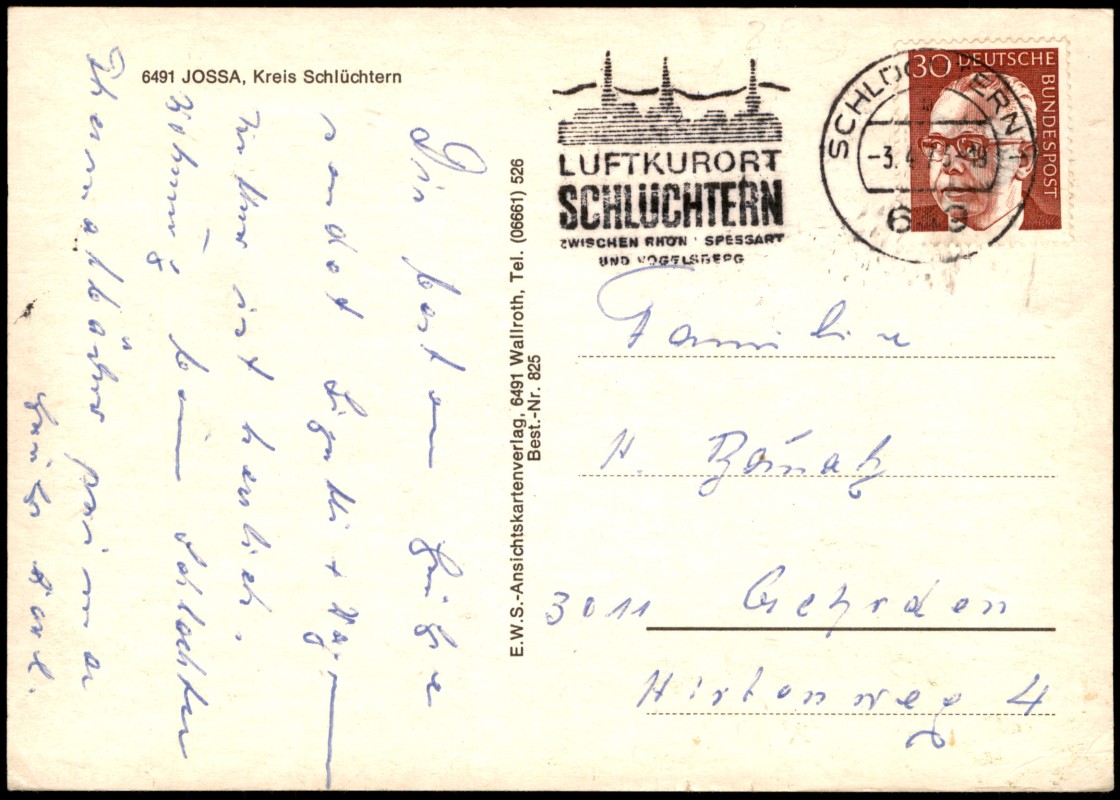 6491 JOSSA, Kreis Schlüchtern
Die besten Grüße
sendet Sigulli +
Die Kur ist herrlich,
beim schlachten
Thermalbäder prima
Gruß Karl.
E.W.S.-Ansichtskartenverlag, 6491 Wallroth, Tel. (06661) 526
Best.-Nr. 825
LUFTKURORT
SCHLÜCHTERN
ZWISCHEN RHÖN · SPESSART
UND VOGELSBERG
SCHLÜCHTERN 1
-3.4.
649
30 DEUTSCHE
BUNDESPOST
Familie
H.
3011 Gehrden
Hirtenweg 4